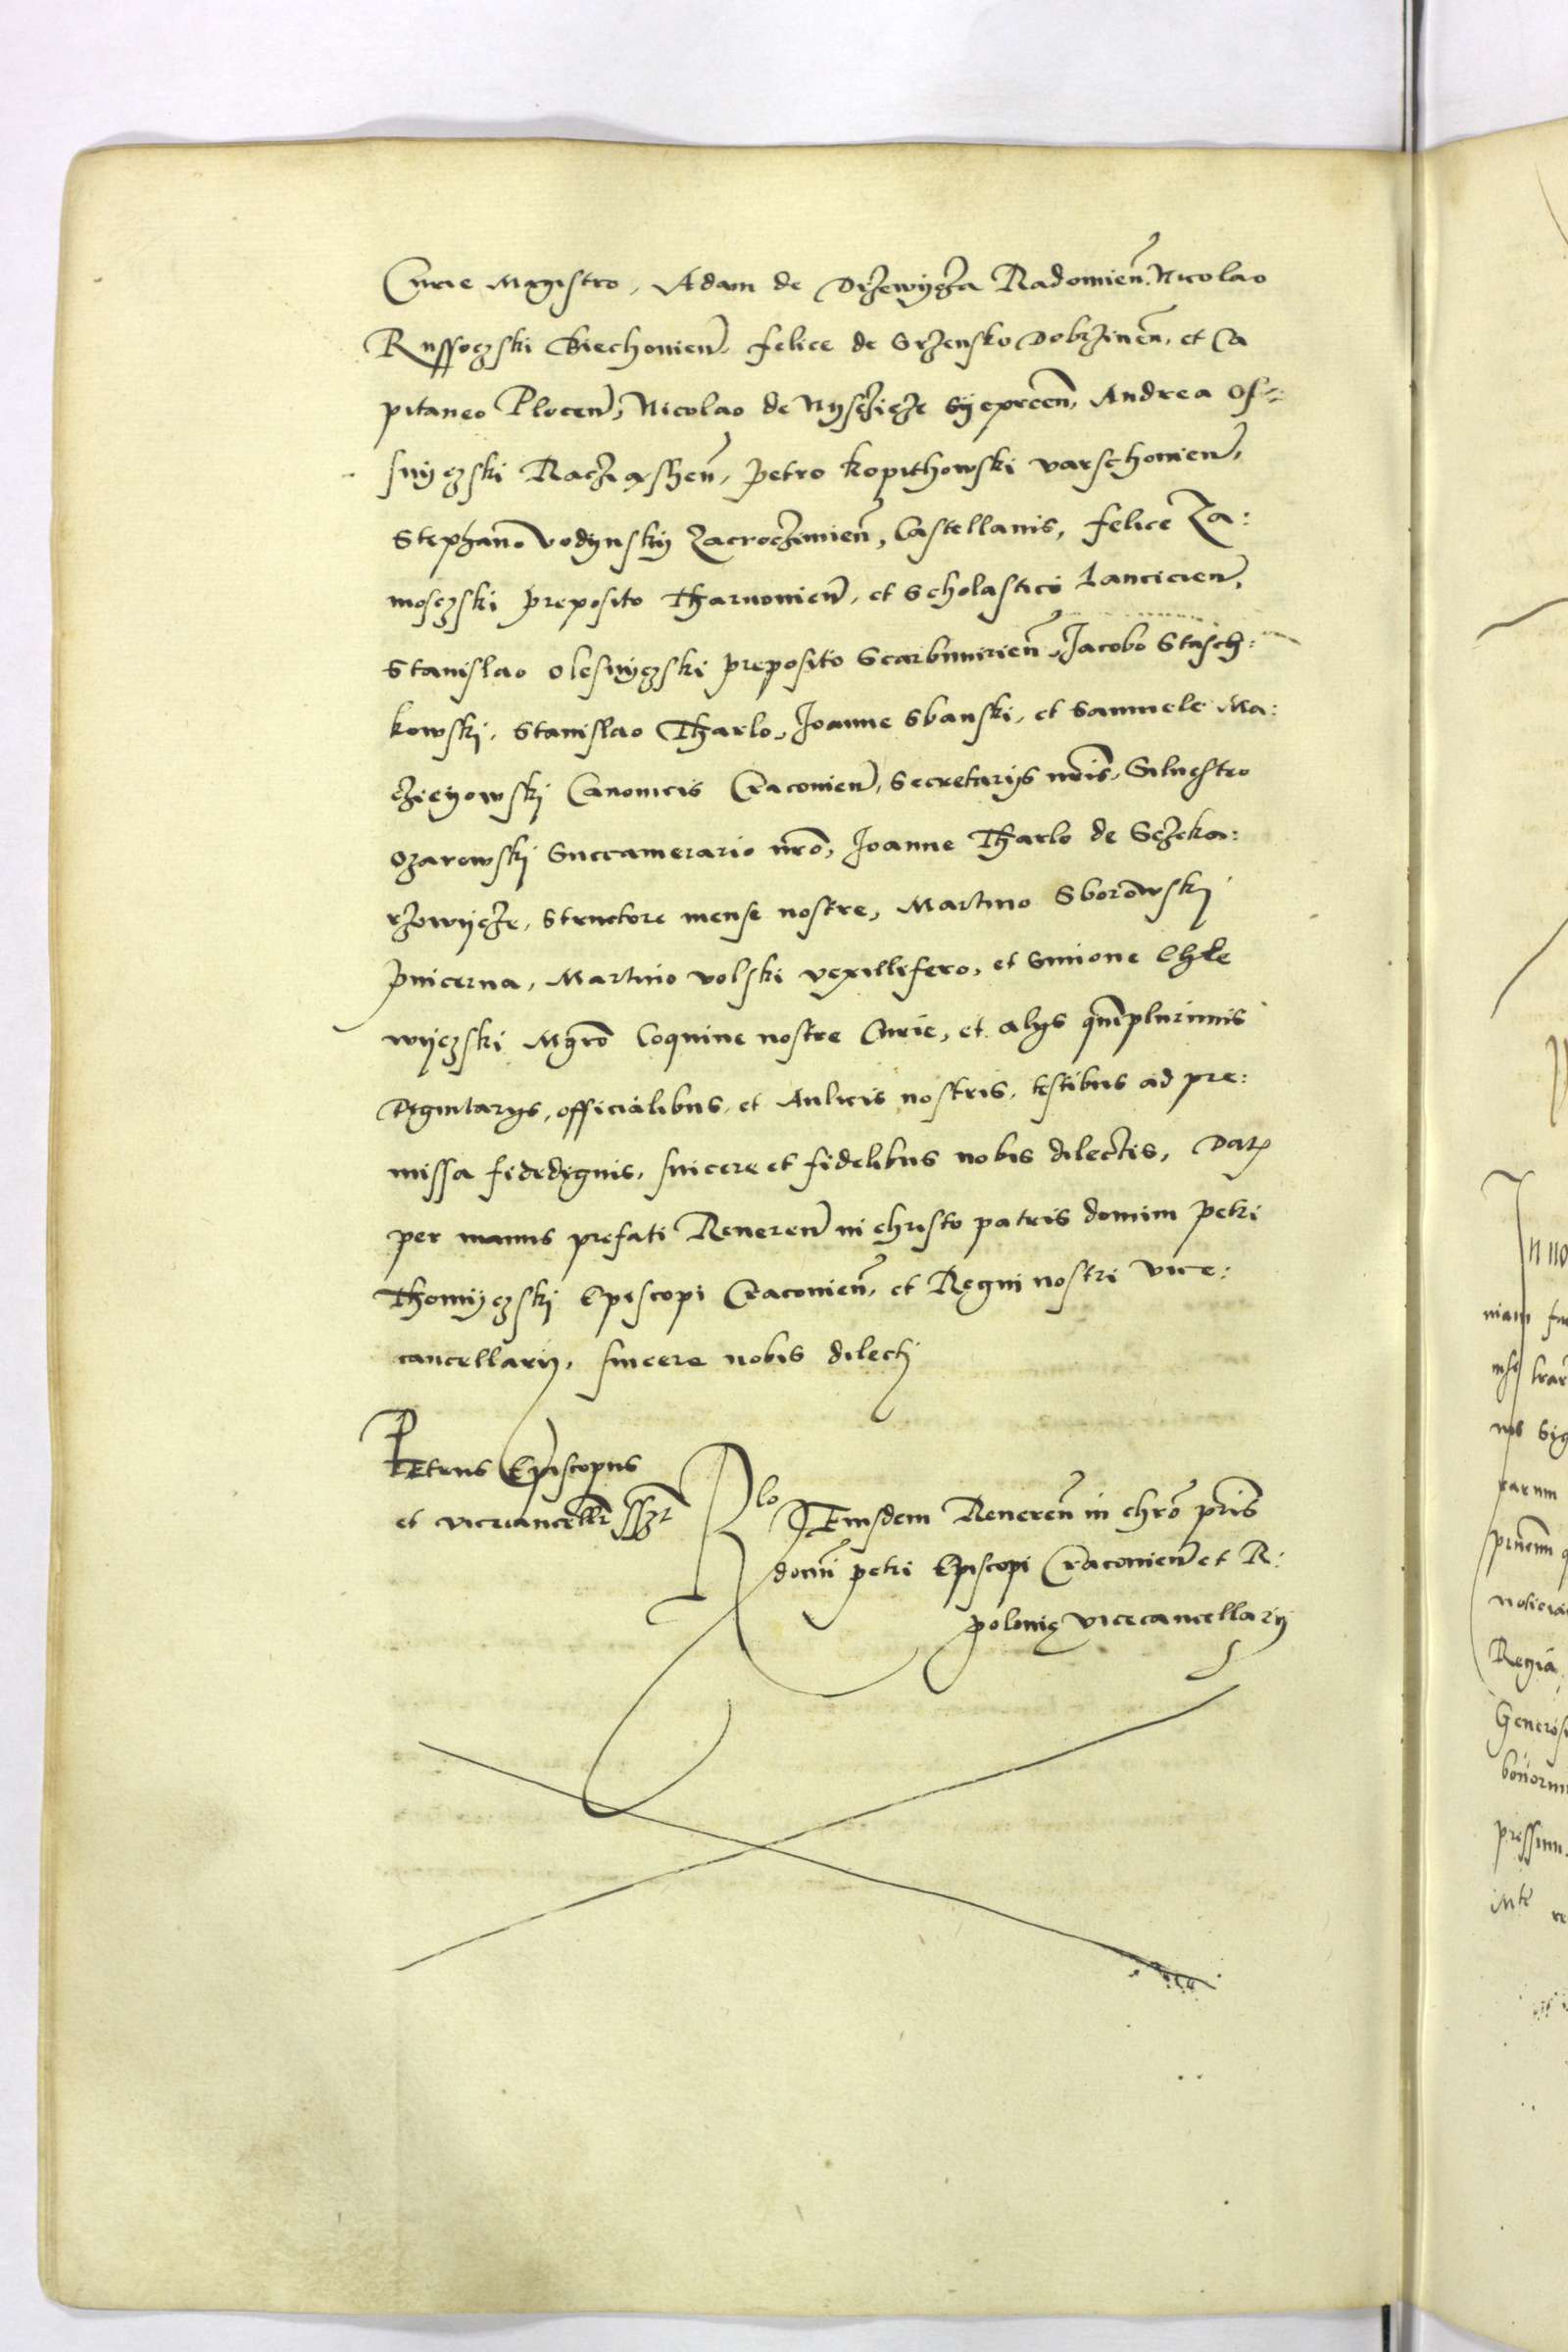 Curie Magistro, Adam de Drzewycza Radomien̄. Nicolao
Russoczski Biechonien̄. felice de Srzensko Dobrzinen̄, et Ca
pitaneo Plocen̄, Nicolao de Nysczicze Syeprcen̄, Andrea Os=
snyczski Racziąszen̄, petro kopithowski varschonien̄,
Stephano vodynsky Zacroczimien̄, Castellanis, felice Za:
mosczski preposito Tharnonien̄, et Scholastico Lancicien̄,
Stanislao olesnyczski preposito Scarbimirien̄, Jacobo Stasch:
kowskj, Stanislao Tharlo, Joanne Sbanski, et Samuele Ma:
czieyowskj Canonicis Craconien̄, Secretarijs nr̄is, Siluestro
ozarowskj Succamerario nrō, Joanne Tharlo de Sczeka:
rzowycze, Structore mense nostre, Martino Sborowskj
pincerna, Martino volski vexillifero, et Simione Chle
wyczski Mgrō Coquine nostre Curie, et alijs quā plurimis
dignitarijs, officialibus, et Aulicis nostris, testibus ad pre:
missa fidedignis, sincere et fidelibus nobis dilectis, Dat
per manus prefati Reueren̄ in christo patris domini petri
Thomyczskj Episcopi Craconien̄, et Regni nostri vice:
cancellarij, sincere nobis dilectj
Petrus Episcopus
et vicecancellr̄ sszt
Rlo Eiusdem Reueren̄ in chrō pr̄is
domī petri Episcopi Craconien̄ et R:
polonię vicecancellarij
In no
niam
Regia
Generos
bonorum